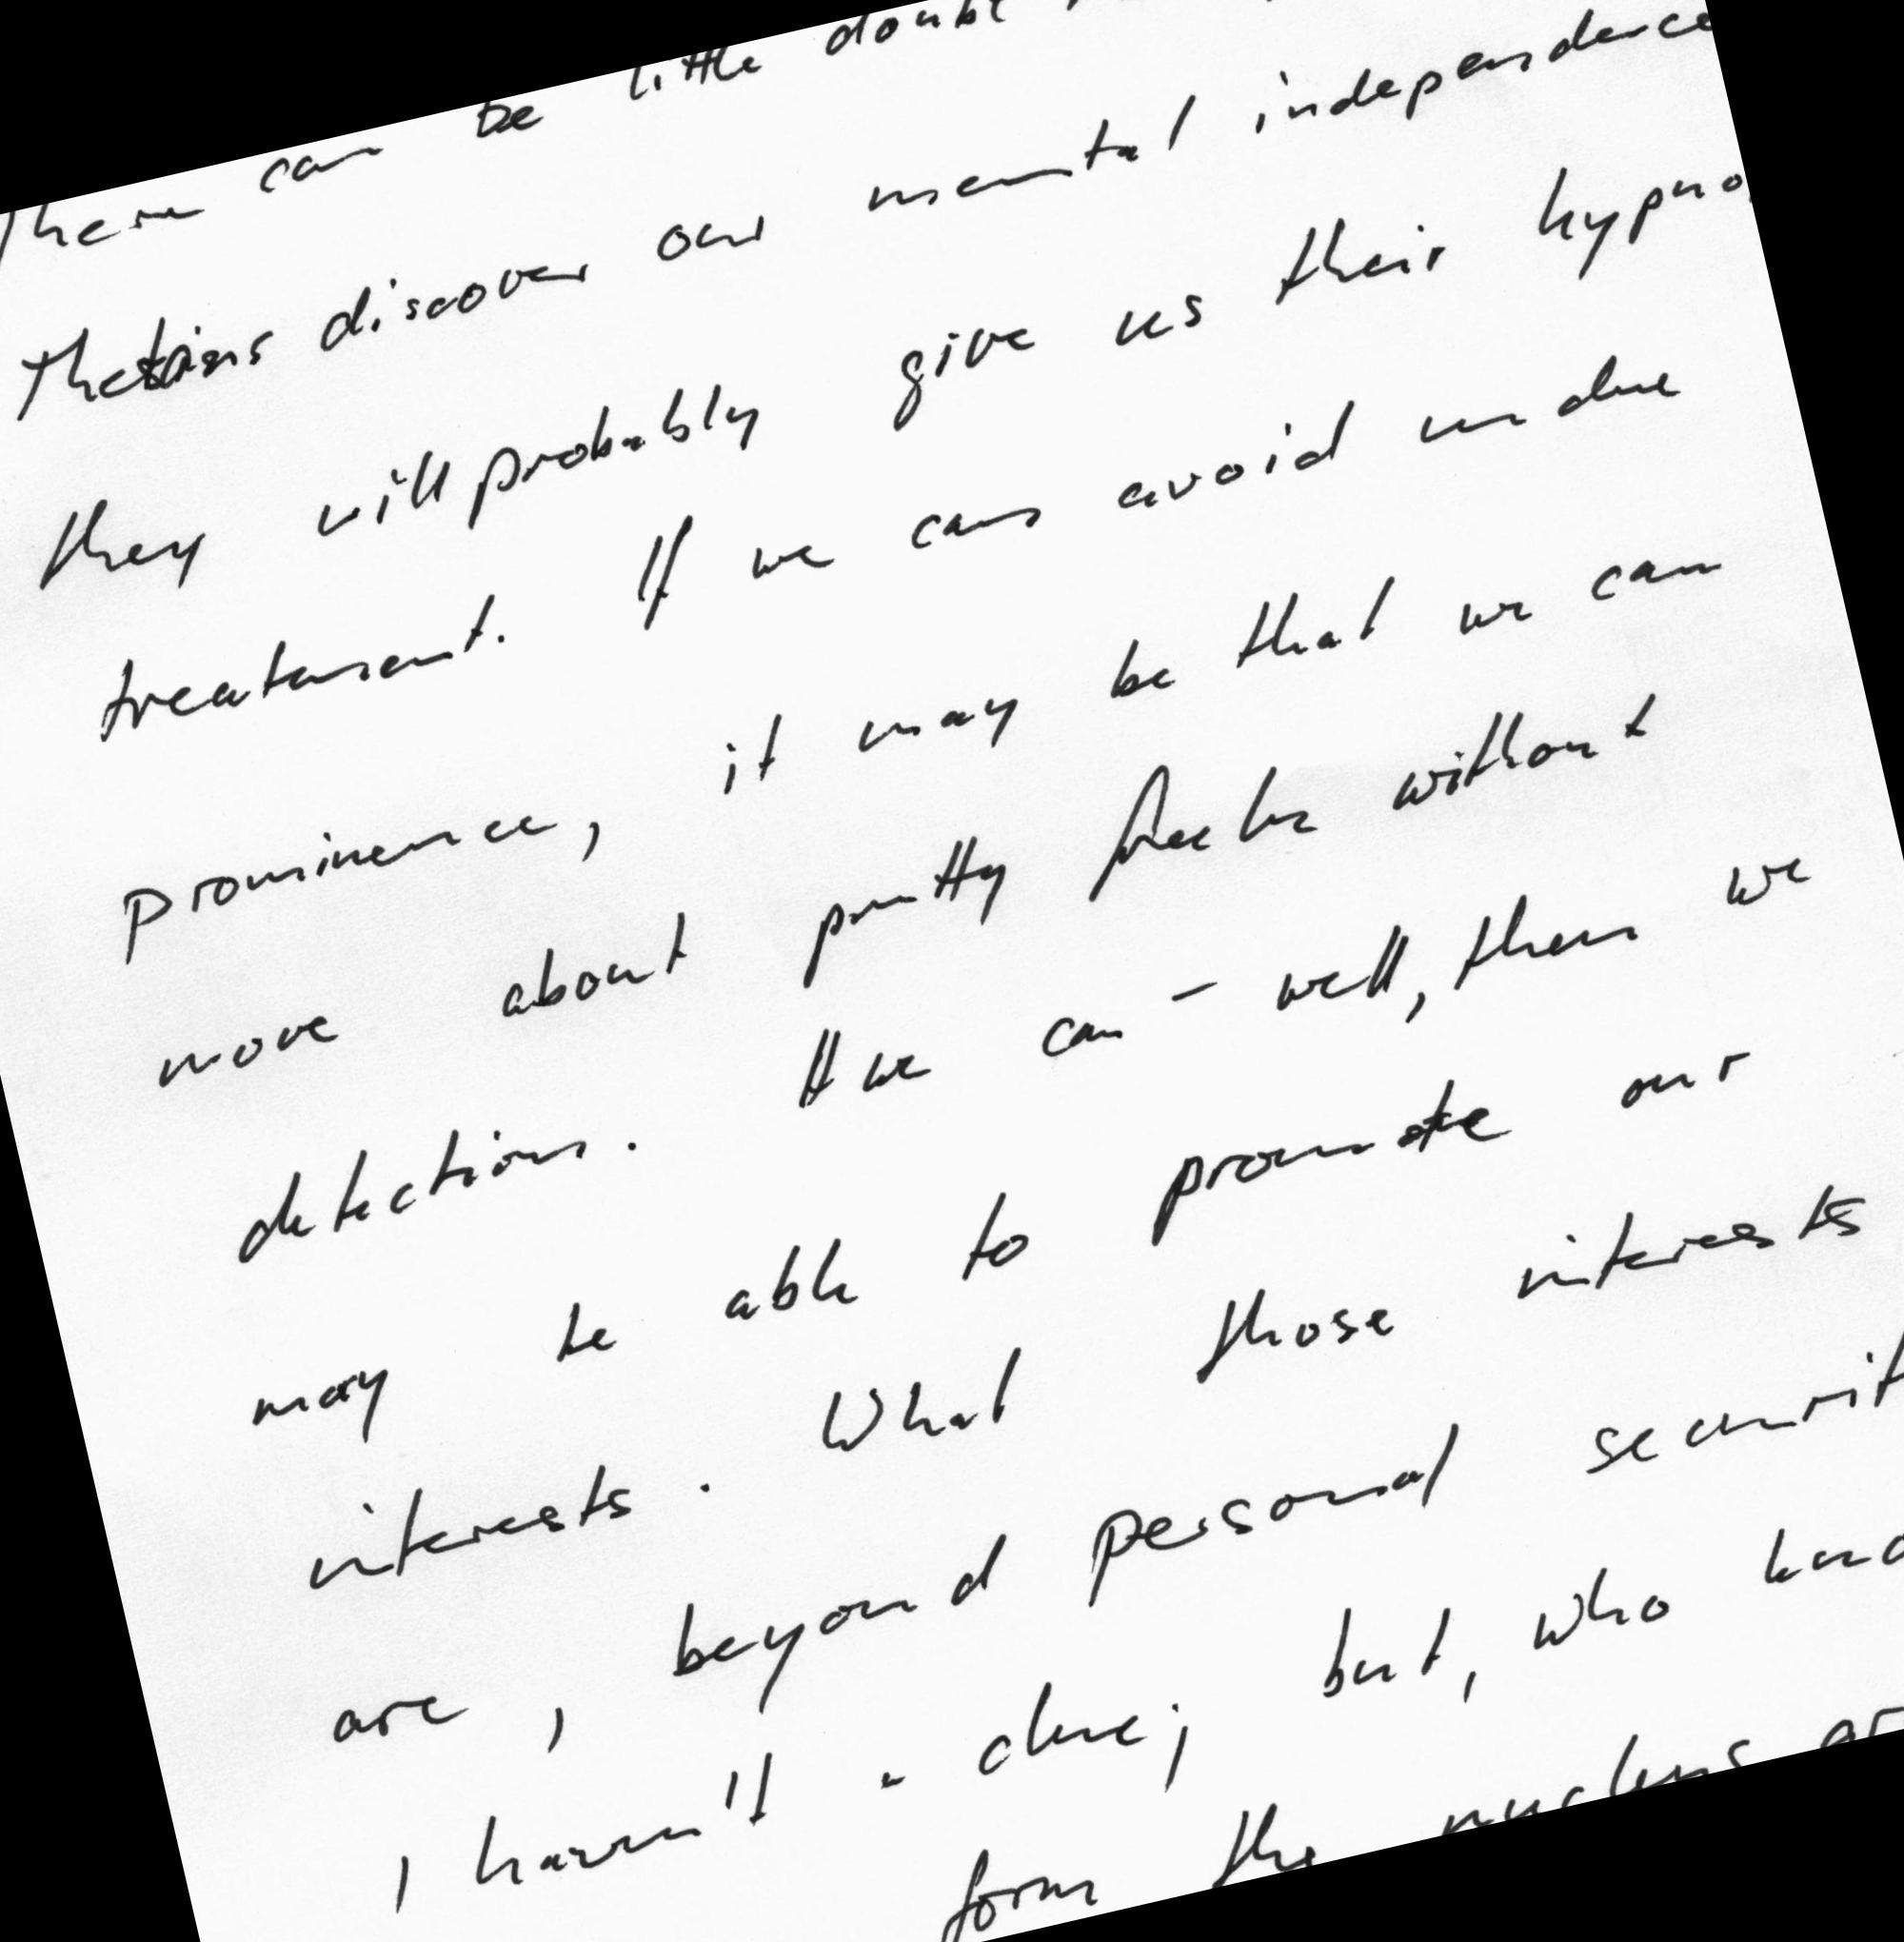 There can be little doubt
Thetans discover our mental independence
they will probably give us their hypno
treatment. If we can avoid undue
prominence, it may be that we can
move about pretty freely without
detection. If we can - well, then we
may be able to promote our
interests. What those interests
are, beyond personal securit
I haven't a clue; but, who kno
form the nucleus